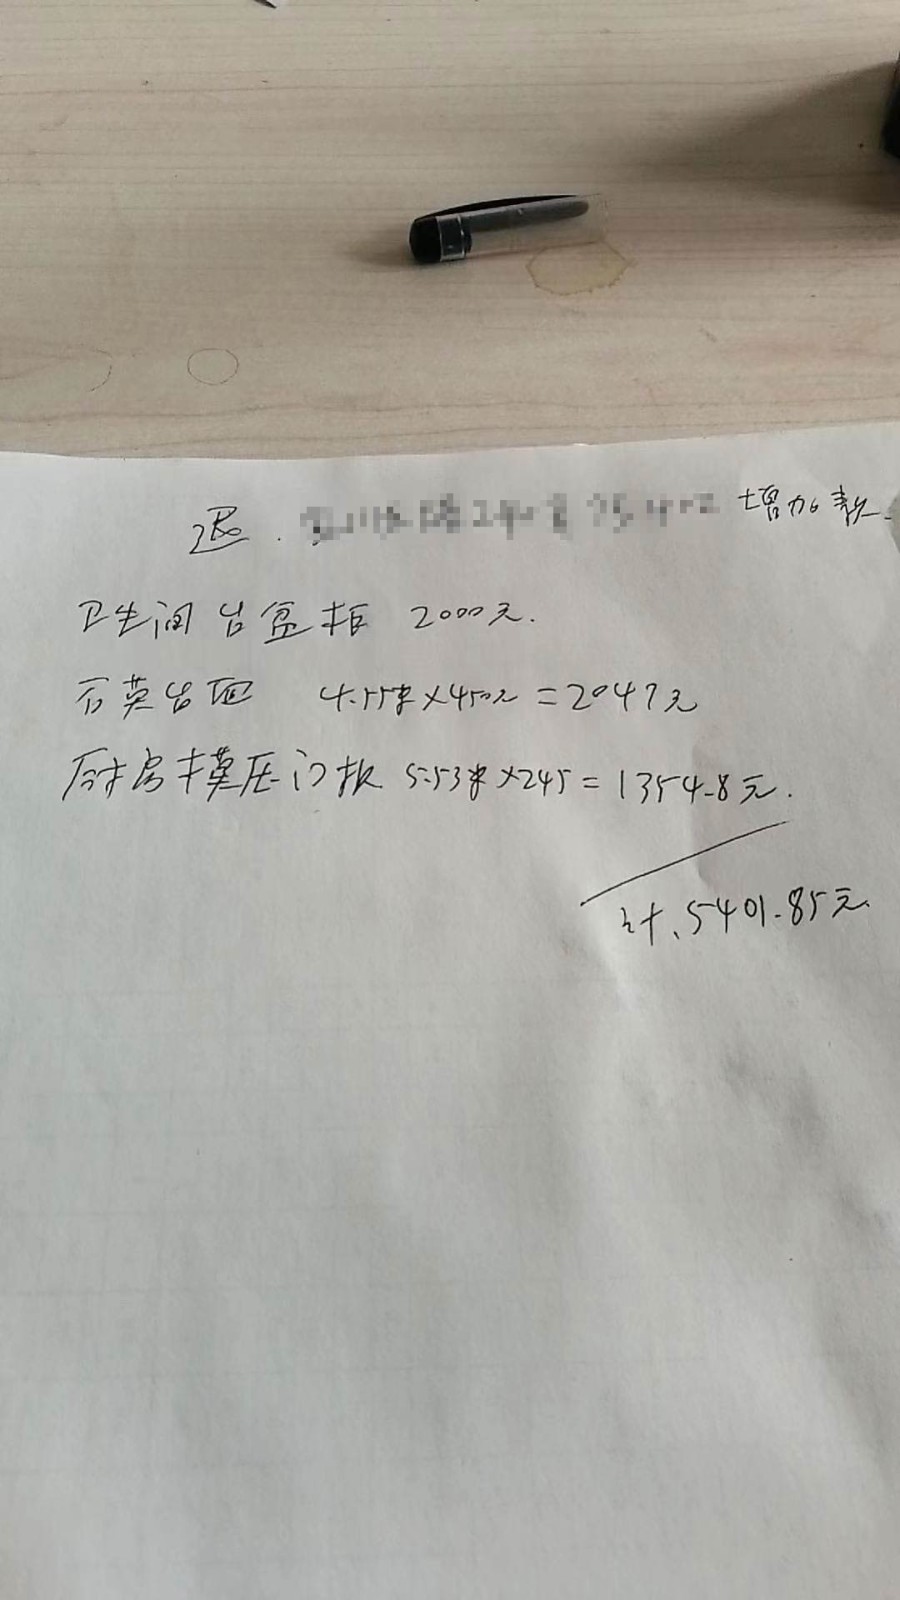 退. 增加款.
卫生间台盆柜 2000元.
石英台面 4.55米×450元=2047元
厨房模压门板 5.53米×245=1354.8元.
计.5401.85元.